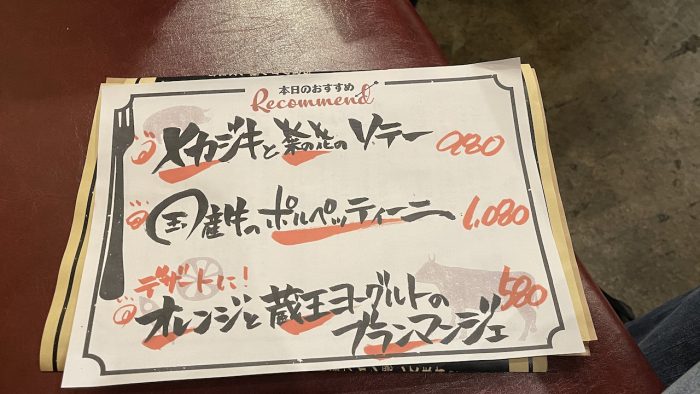 本日のおすすめ
Recommend
メカジキと菜の花のソテー 980
国産牛のポルペッティーニ 1,080
デザートに!
オレンジと蔵王ヨーグルトの 580
ブランマンジェ